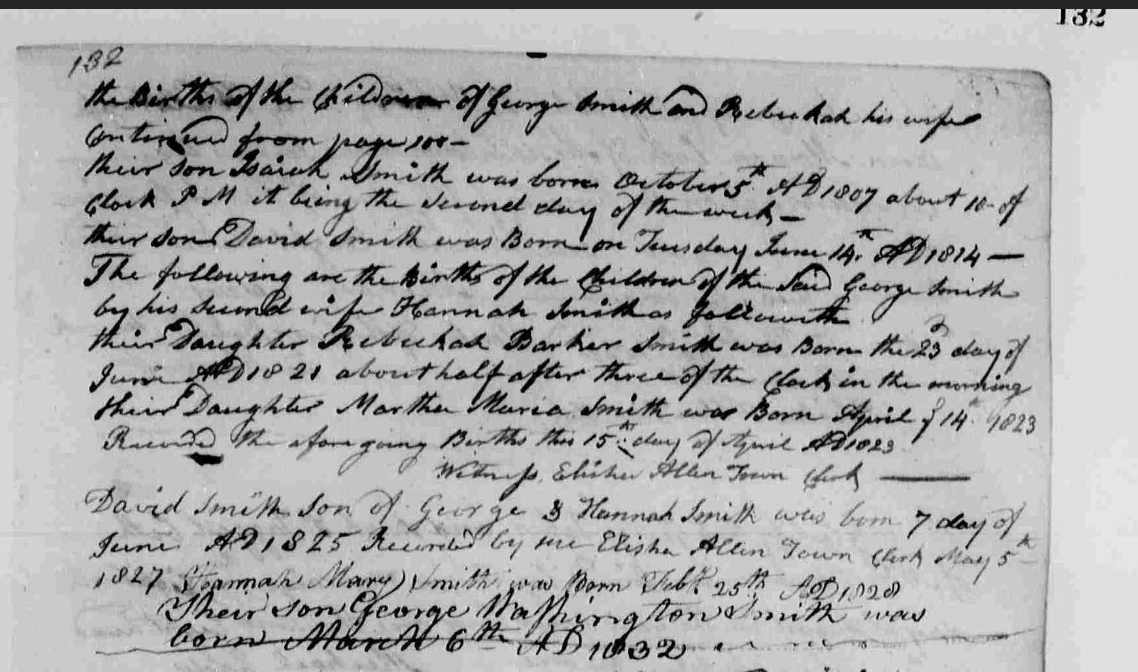 132
132
the Births of the Children of George Smith and Rebeckah his wife
Continued from page 100 -
their son Isaiah Smith was born October 5th AD 1807 about 10 of
Clock P M it being the second day of the week -
their son David Smith was Born on Tuesday June 14th AD 1814 —
The following are the Births of the Children of the Said George Smith
by his second wife Hannah Smith as followeth
their Daughter Rebeckah Barker Smith was Born the 23 day of
June AD 1821 about half after three of the Clock in the morning
their Daughter Martha Maria Smith was Born April 14th 1823
Recorded the afore going Births this 15th day of April AD 1823
Witness Elisha Allen Town Clerk —
David Smith Son of George & Hannah Smith was born 7 day of
June AD 1825 Recorded by me Elisha Allen Town Clerk May 5th
1827 (Hannah Mary) Smith was Born Feb 25th AD 1828
Their son George Washington Smith was
born March 6th AD 1832